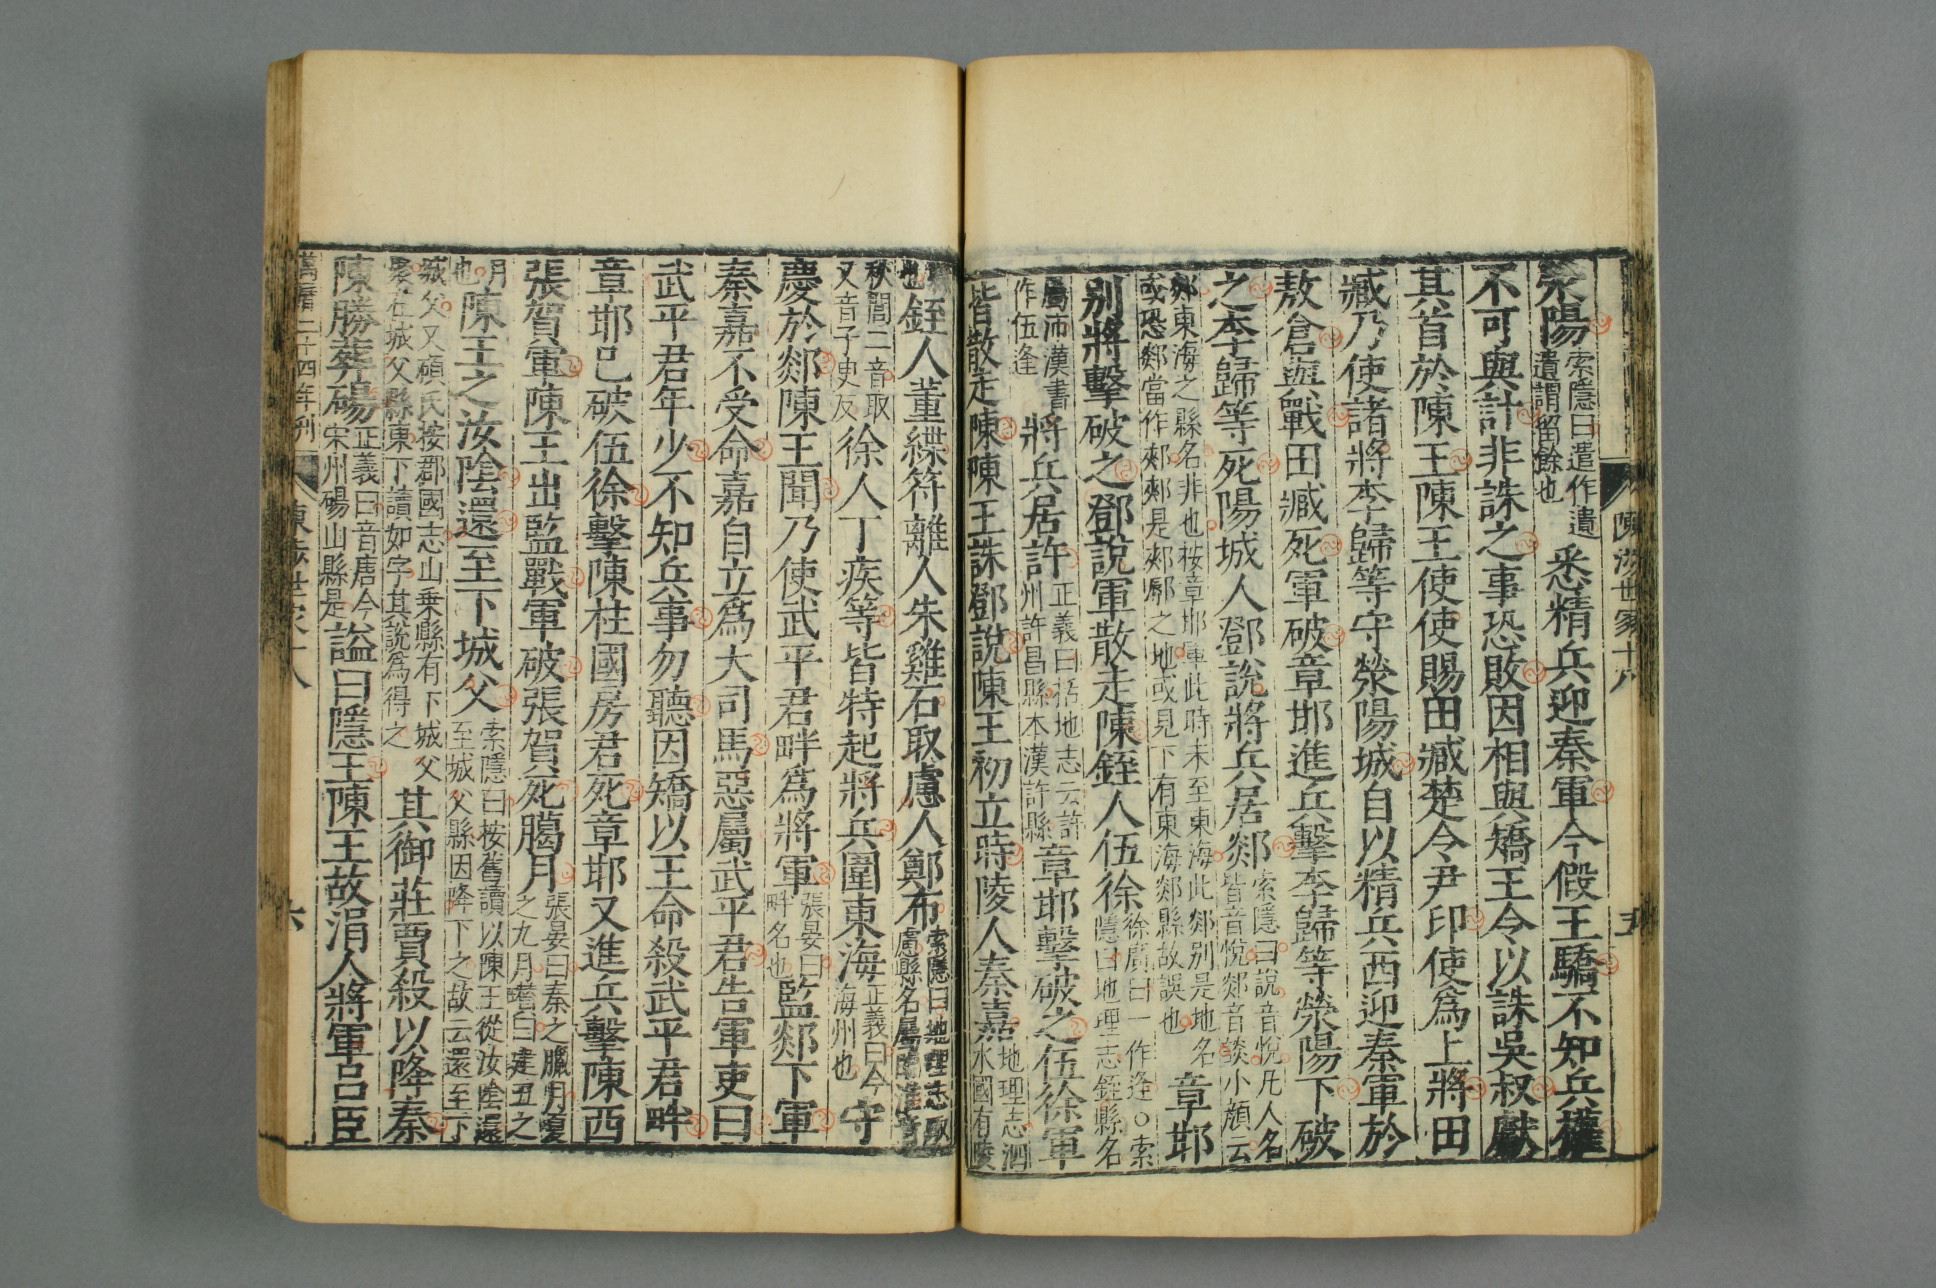 陳涉世家十八
五
滎陽索隱曰遣作遺遺謂留餘也悉精兵迎秦軍今假王驕不知兵權
不可與計非誅之事恐敗因相與矯王令以誅吳叔獻
其首於陳王陳王使使賜田臧楚令尹印使爲上將田
臧乃使諸將李歸等守滎陽城自以精兵西迎秦軍於
敖倉與戰田臧死軍破章邯進兵擊李歸等滎陽下破
之李歸等死陽城人鄧說將兵居郯索隱曰說音悅凡人名皆音悅郯音談小顏云
郯東海之縣名非也按章邯軍此時未至東海此郯別是地名或恐郯當作郟郟是郟鄏之地或見下有東海郯縣故誤也章邯
別將擊破之鄧說軍散走陳銍人伍徐徐廣曰一作逢○索隱曰地理志銍縣名
屬沛漢書作伍逢將兵居許正義曰括地志云許州許昌縣本漢許縣章邯擊破之伍徐軍
皆散走陳陳王誅鄧說陳王初立時陵人秦嘉地理志泗水國有陵
也銍人董緤符離人朱雞石取慮人鄭布索隱曰地理志取慮縣名屬臨淮音
秋閭二音取又音子臾反徐人丁疾等皆特起將兵圍東海正義曰今海州也守
慶於郯陳王聞乃使武平君畔爲將軍張晏曰畔名也監郯下軍
秦嘉不受命嘉自立爲大司馬惡屬武平君告軍吏曰
武平君年少不知兵事勿聽因矯以王命殺武平君畔
章邯已破伍徐擊陳柱國房君死章邯又進兵擊陳西
張賀軍陳王出監戰軍破張賀死臈月張晏曰秦之臘月夏之九月瓚曰建丑之
月也陳王之汝陰還至下城父索隱曰按舊讀以陳王從汝陰還至城父縣因降下之故云還至下
城父又顧氏按郡國志山乗縣有下城父聚在城父縣東下讀如字其說爲得之其御莊賈殺以降秦
陳勝葬碭正義曰音唐今宋州碭山縣是謚曰隱王陳王故涓人將軍呂臣
萬曆二十四年刊
陳涉世家十八
六